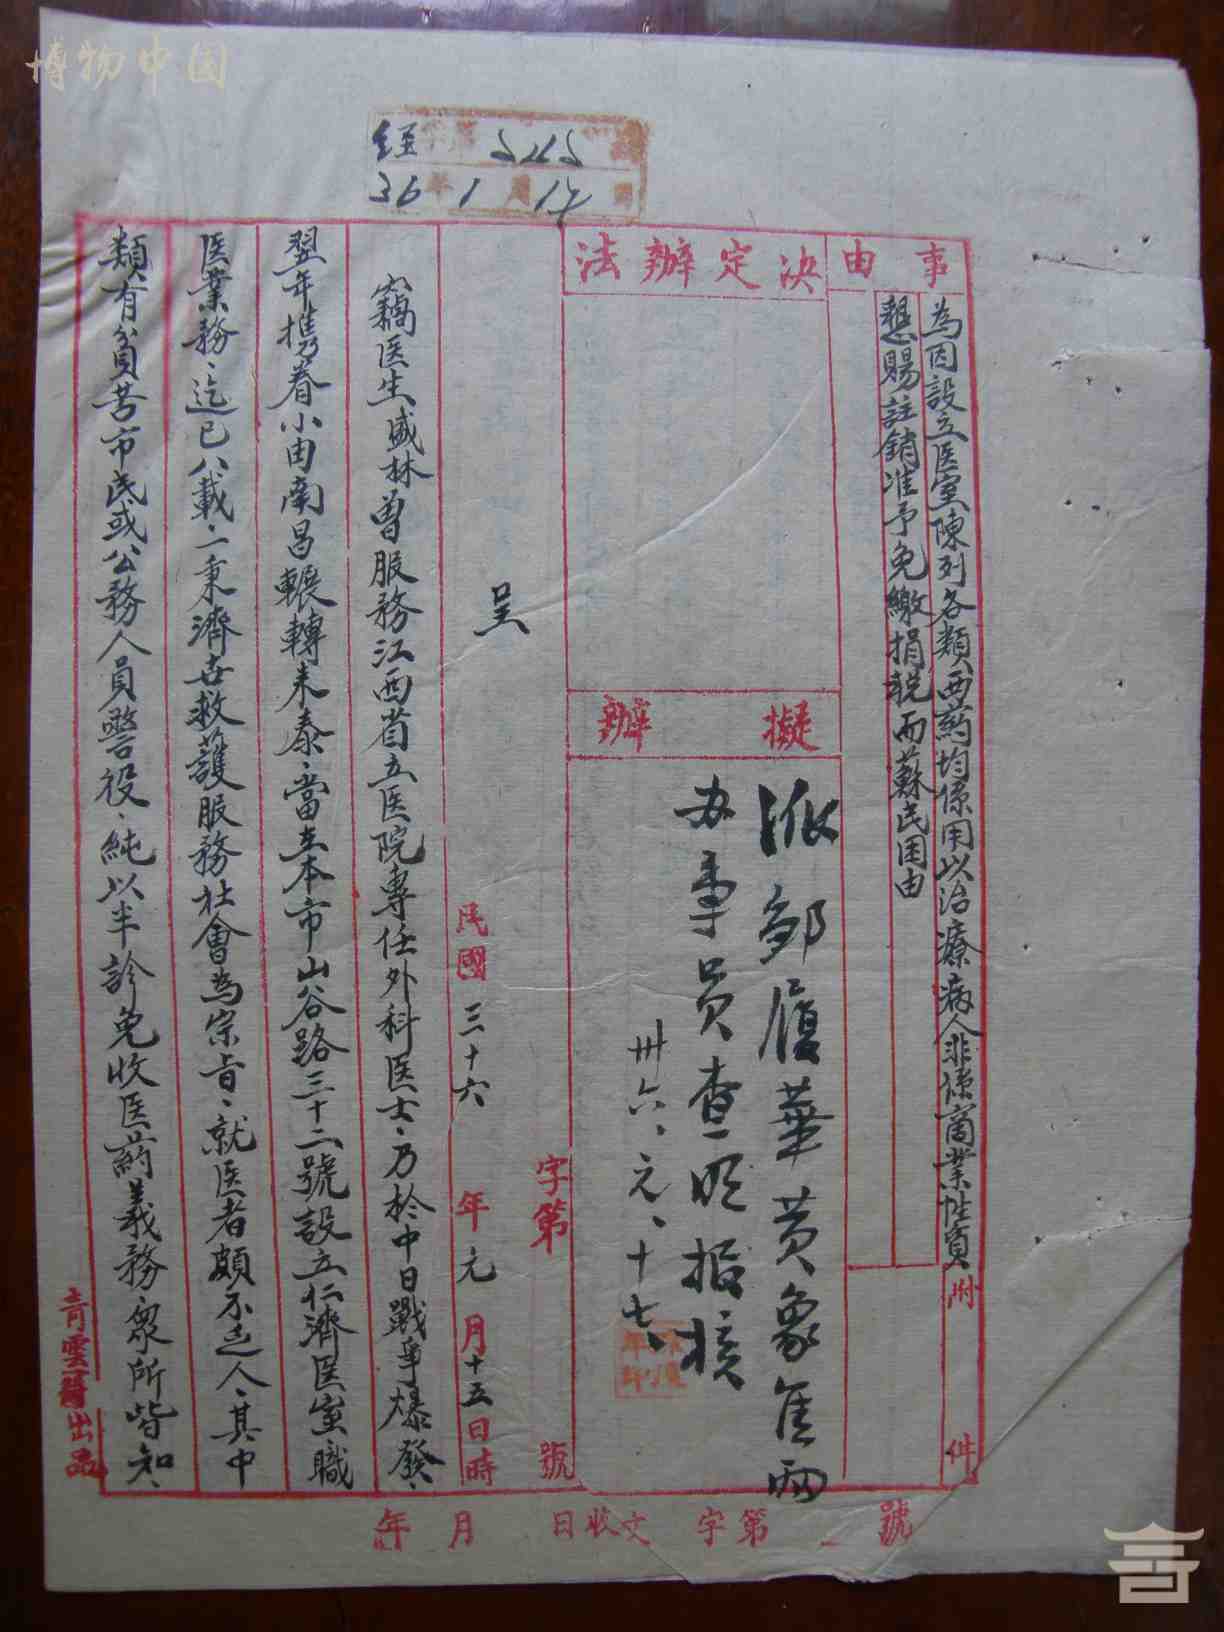 博物中国
經
36年1月17日
事由
為因設立医室陳列各類西葯均係用以治療病人非係商業性質
懇賜註銷准予免繳捐税而蘇民困由
附件
決定辦法
擬辦
派鄒履華黄象隹兩
办事員查明指核
卅六、元、十七、
字第號
呈
民國三十六年元月十五日時
竊医生盛林曾服務江西省立医院專任外科医士、乃於中日戰爭爆發、
翌年携眷小由南昌輾轉来泰、當在本市山谷路三十二號設立仁濟医室職
医業務、迄已八載、一秉濟世救護服務社會為宗旨、就医者頗不乏人、其中
類有貧苦市民或公務人員警役、純以半診免收医葯義務、衆所皆知、
青雲齋出品
年月日收文字第號